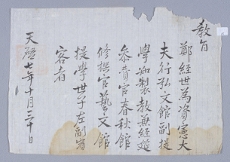 敎旨
鄭經世爲資憲大
夫行弘文館副提
學知製敎兼經筵
參贊官春秋館
修撰官藝文館
提學世子左副賓
客者
天啓七年十月二十日